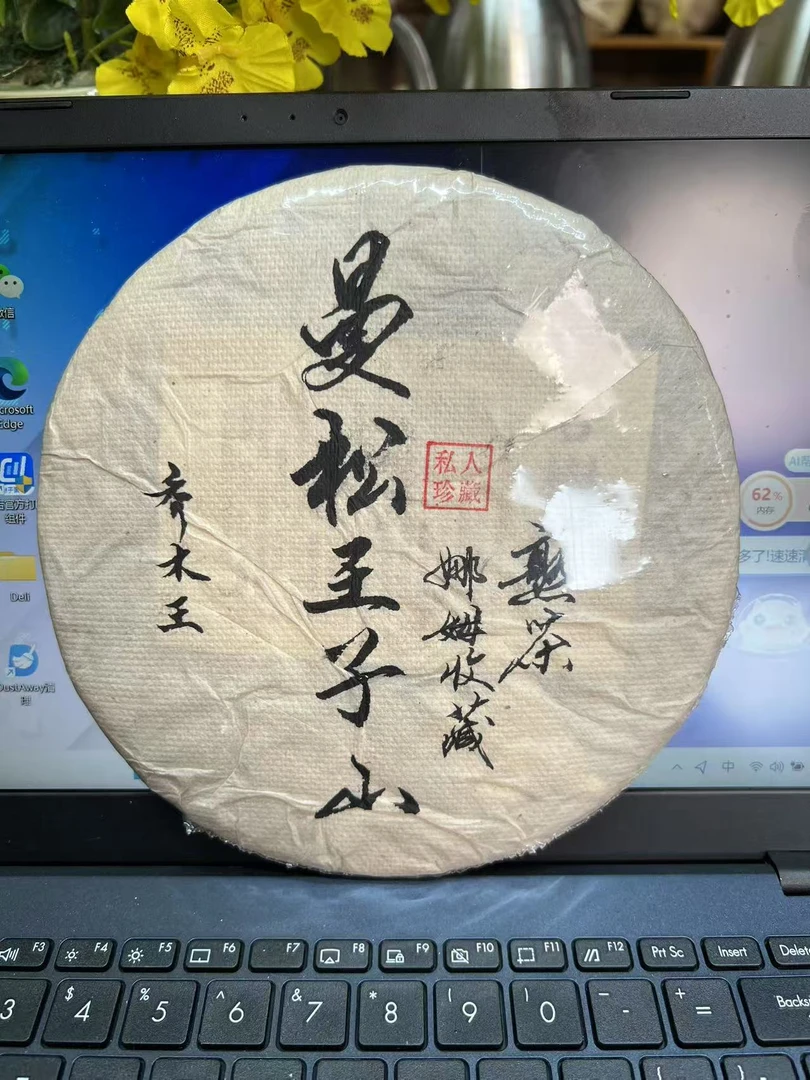 曼松王子山
乔木王
私人
珍藏
熟茶
娜姆收藏
微信
crosoft
Edge
组件
Dell
DustAway清
理
AI
62%
内存
多了!速速清
中
F3
F4
F5
F6
F7
F8
F9
F10
F11
F12
Prt Sc
Insert
Delete
3
$ 4
% 5
^ 6
& 7
* 8
( 9
) 0
- -
+ =
Backs